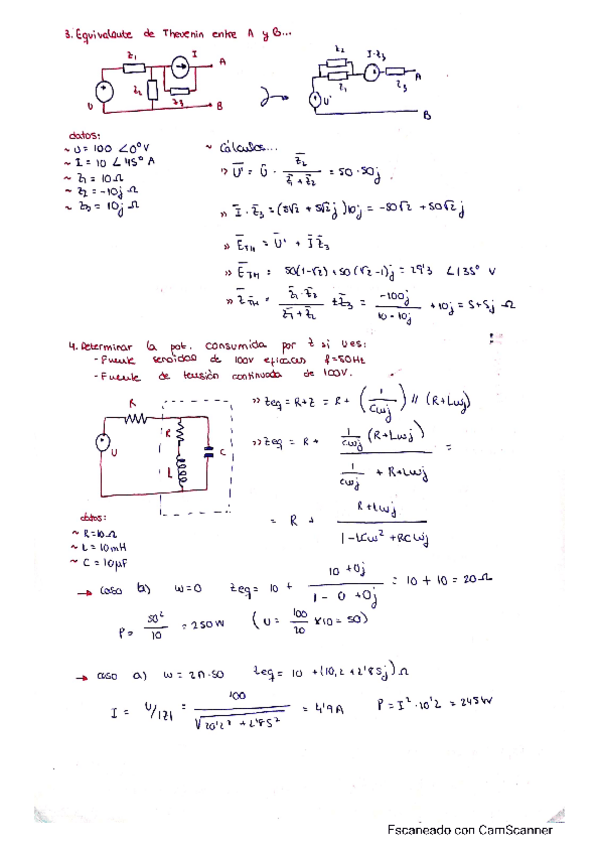 3. Equivalente de Thevenin entre A y B...
Z1 I A
U Z2 Z3 B
Z2 I·Z3
Z1 Z3 A
U' B
datos:
~ U = 100 ∠0° V
~ I = 10 ∠45° A
~ Z1 = 10 Ω
~ Z2 = -10j Ω
~ Z3 = 10j Ω
~ Cálculos...
» U' = U · Z2 / (Z1 + Z2) = 50 - 50j
» I · Z3 = (5√2 + 5√2j) 10j = -50√2 + 50√2j
» ETH = U' + I Z3
» ETH = 50(1-√2) + 50(√2-1)j = 29'3 ∠135° V
» ZTH = Z1·Z2 / (Z1 + Z2) + Z3 = -100j / (10 - 10j) + 10j = 5+5j Ω
4. Determinar la pot. consumida por Z si U es:
- Fuente senoidal de 100V eficaces f=50Hz
- Fuente de tensión continuada de 100V.
R
U R L C
datos:
~ R = 10 Ω
~ L = 10 mH
~ C = 10 μF
» Zeq = R+Z = R + (1 / Cωj) // (R+Lωj)
» Zeq = R + (1/Cωj (R+Lωj)) / (1/Cωj + R+Lωj) =
= R + (R+Lωj) / (1-LCω² + RCωj)
→ Caso b) ω=0 Zeq = 10 + (10 + 0j) / (1 - 0 + 0j) = 10 + 10 = 20 Ω
P = 50² / 10 = 250 W (U = 100/20 × 10 = 50)
→ caso a) ω = 2π·50 Zeq = 10 + (10,2 + 2'85j) Ω
I = U/|Z| = 100 / √(20'2² + 2'85²) = 4'9 A P = I² · 10'2 = 245 W
Escaneado con CamScanner